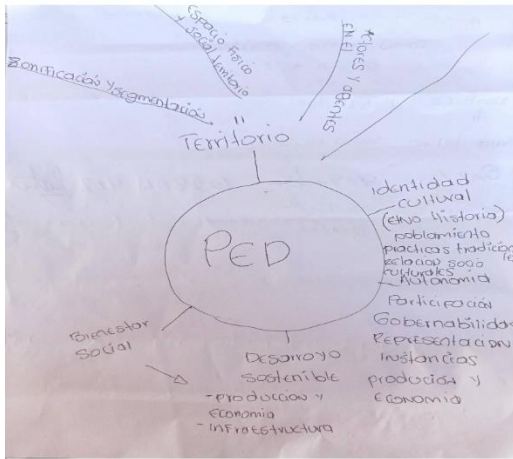 Zonificación y segmentación
Espacio físico
y social territorio
Actores y agentes
en el
"
Territorio
PED
Identidad
cultural
(etno historia)
poblamiento
practicas tradicion
relacion socio
culturales
Autonomia
Participación
Gobernabilidad
Representacion
Instancias
producion y
Economia
Desarroyo
Sostenible
- produccion y
Economia
- Infraestructura
Bienestar
Social